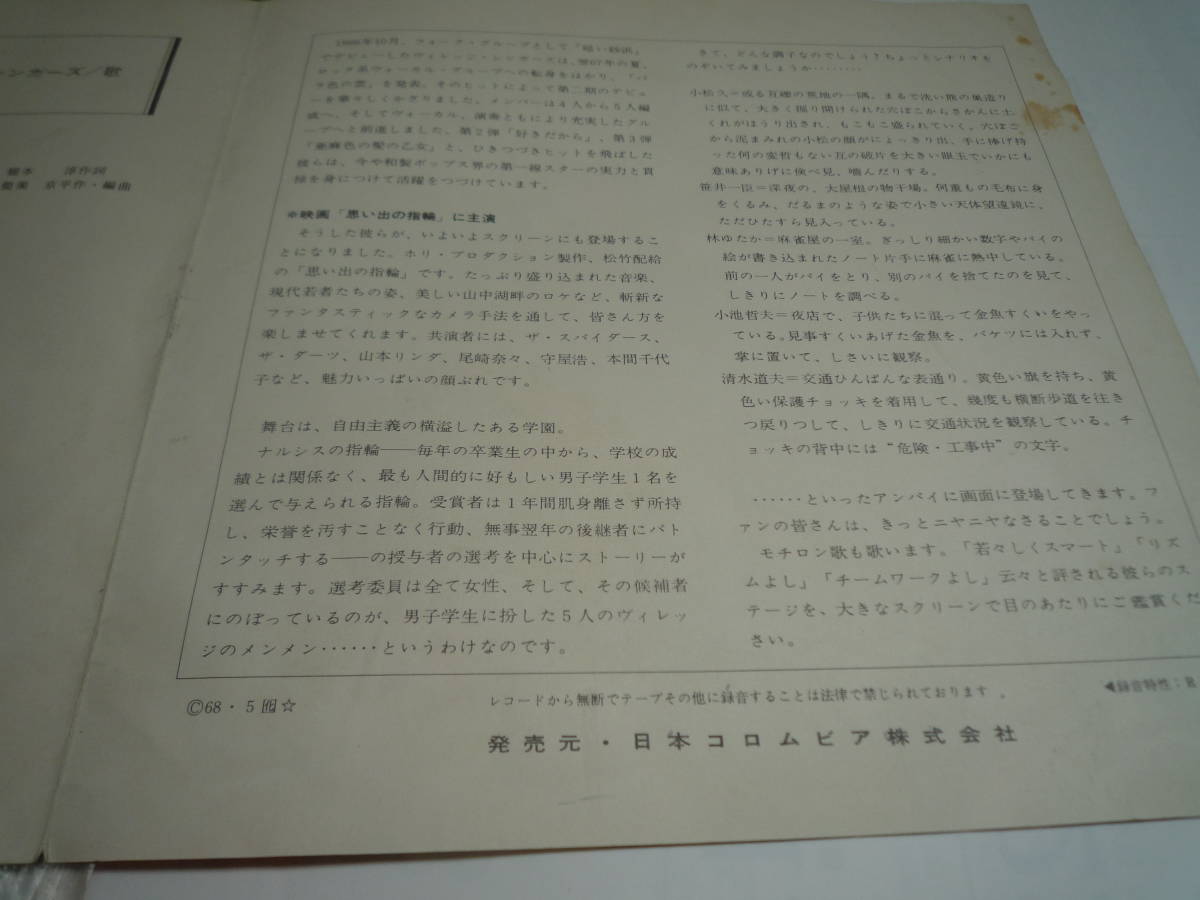 ンガーズ/歌
橋本 淳作詞
京平作・編曲
1966年10月、フォーク・グループとして「暗い砂浜」
でデビューしたヴィレッジ・シンガーズは、翌67年の夏、
ロック系ヴォーカル・グループへの転身をはかり、「バ
ラ色の雲」を発表。そのヒットによって第二期のデビュ
ーを華々しくかざりました。メンバーは4人から5人編
成へ、そしてヴォーカル、演奏ともにより充実したグル
ープへと前進しました。第2弾「好きだから」、第3弾
「亜麻色の髪の乙女」と、ひきつづきヒットを飛ばした
彼らは、今や和製ポップス界の第一線スターの実力と貫
禄を身につけて活躍をつづけています。
※映画「思い出の指輪」に主演
そうした彼らが、いよいよスクリーンにも登場するこ
とになりました。ホリ・プロダクション製作、松竹配給
の「思い出の指輪」です。たっぷり盛り込まれた音楽、
現代若者たちの姿、美しい山中湖畔のロケなど、斬新な
ファンタスティックなカメラ手法を通して、皆さん方を
楽しませてくれます。共演者には、ザ・スパイダース、
ザ・ダーツ、山本リンダ、尾崎奈々、守屋浩、本間千代
子など、魅力いっぱいの顔ぶれです。
舞台は、自由主義の横溢したある学園。
ナルシスの指輪——毎年の卒業生の中から、学校の成
績とは関係なく、最も人間的に好もしい男子学生1名を
選んで与えられる指輪。受賞者は1年間肌身離さず所持
し、栄誉を汚すことなく行動、無事翌年の後継者にバト
ンタッチする——の授与者の選考を中心にストーリーが
すすみます。選考委員は全て女性、そして、その候補者
にのぼっているのが、男子学生に扮した5人のヴィレッ
ジのメンメン……というわけなのです。
さて、どんな調子なのでしょう?ちょっとシナリオを
のぞいてみましょうか………
小松久=或る瓦礫の荒地の一隅。まるで洗い熊の巣造り
に似て、大きく掘り開けられた穴ぼこからさかんに土
くれがほうり出され、もこもこ盛られていく。穴ぼこ
から泥まみれの小松の顔がにょっきり出、手に捧げ持
った何の変哲もない瓦の破片を大きい眼玉でいかにも
意味ありげに倹べ見、嚙んだりする。
笹井一臣=深夜の、大屋根の物干場。何重もの毛布に身
をくるみ、だるまのような姿で小さい天体望遠鏡に、
ただひたすら見入っている。
林ゆたか=麻雀屋の一室。ぎっしり細かい数字やパイの
絵が書き込まれたノート片手に麻雀に熱中している。
前の一人がパイをとり、別のパイを捨てたのを見て、
しきりにノートを調べる。
小池哲夫=夜店で、子供たちに混って金魚すくいをやっ
ている。見事すくいあげた金魚を、バケツには入れず、
掌に置いて、しさいに観察。
清水道夫=交通ひんぱんな表通り。黄色い旗を持ち、黄
色い保護チョッキを着用して、幾度も横断歩道を往き
つ戻りつして、しきりに交通状況を観察している。チ
ョッキの背中には“危険・工事中”の文字。
……といったアンバイに画面に登場してきます。フ
ァンの皆さんは、きっとニヤニヤなさることでしょう。
モチロン歌も歌います。「若々しくスマート」「リズ
ムよし」「チームワークよし」云々と評される彼らのス
テージを、大きなスクリーンで目のあたりにご鑑賞くだ
さい。
Ⓒ68・5 ☆
レコードから無断でテープその他に録音することは法律で禁じられております。
◀録音特性:R
発売元・日本コロムビア株式会社